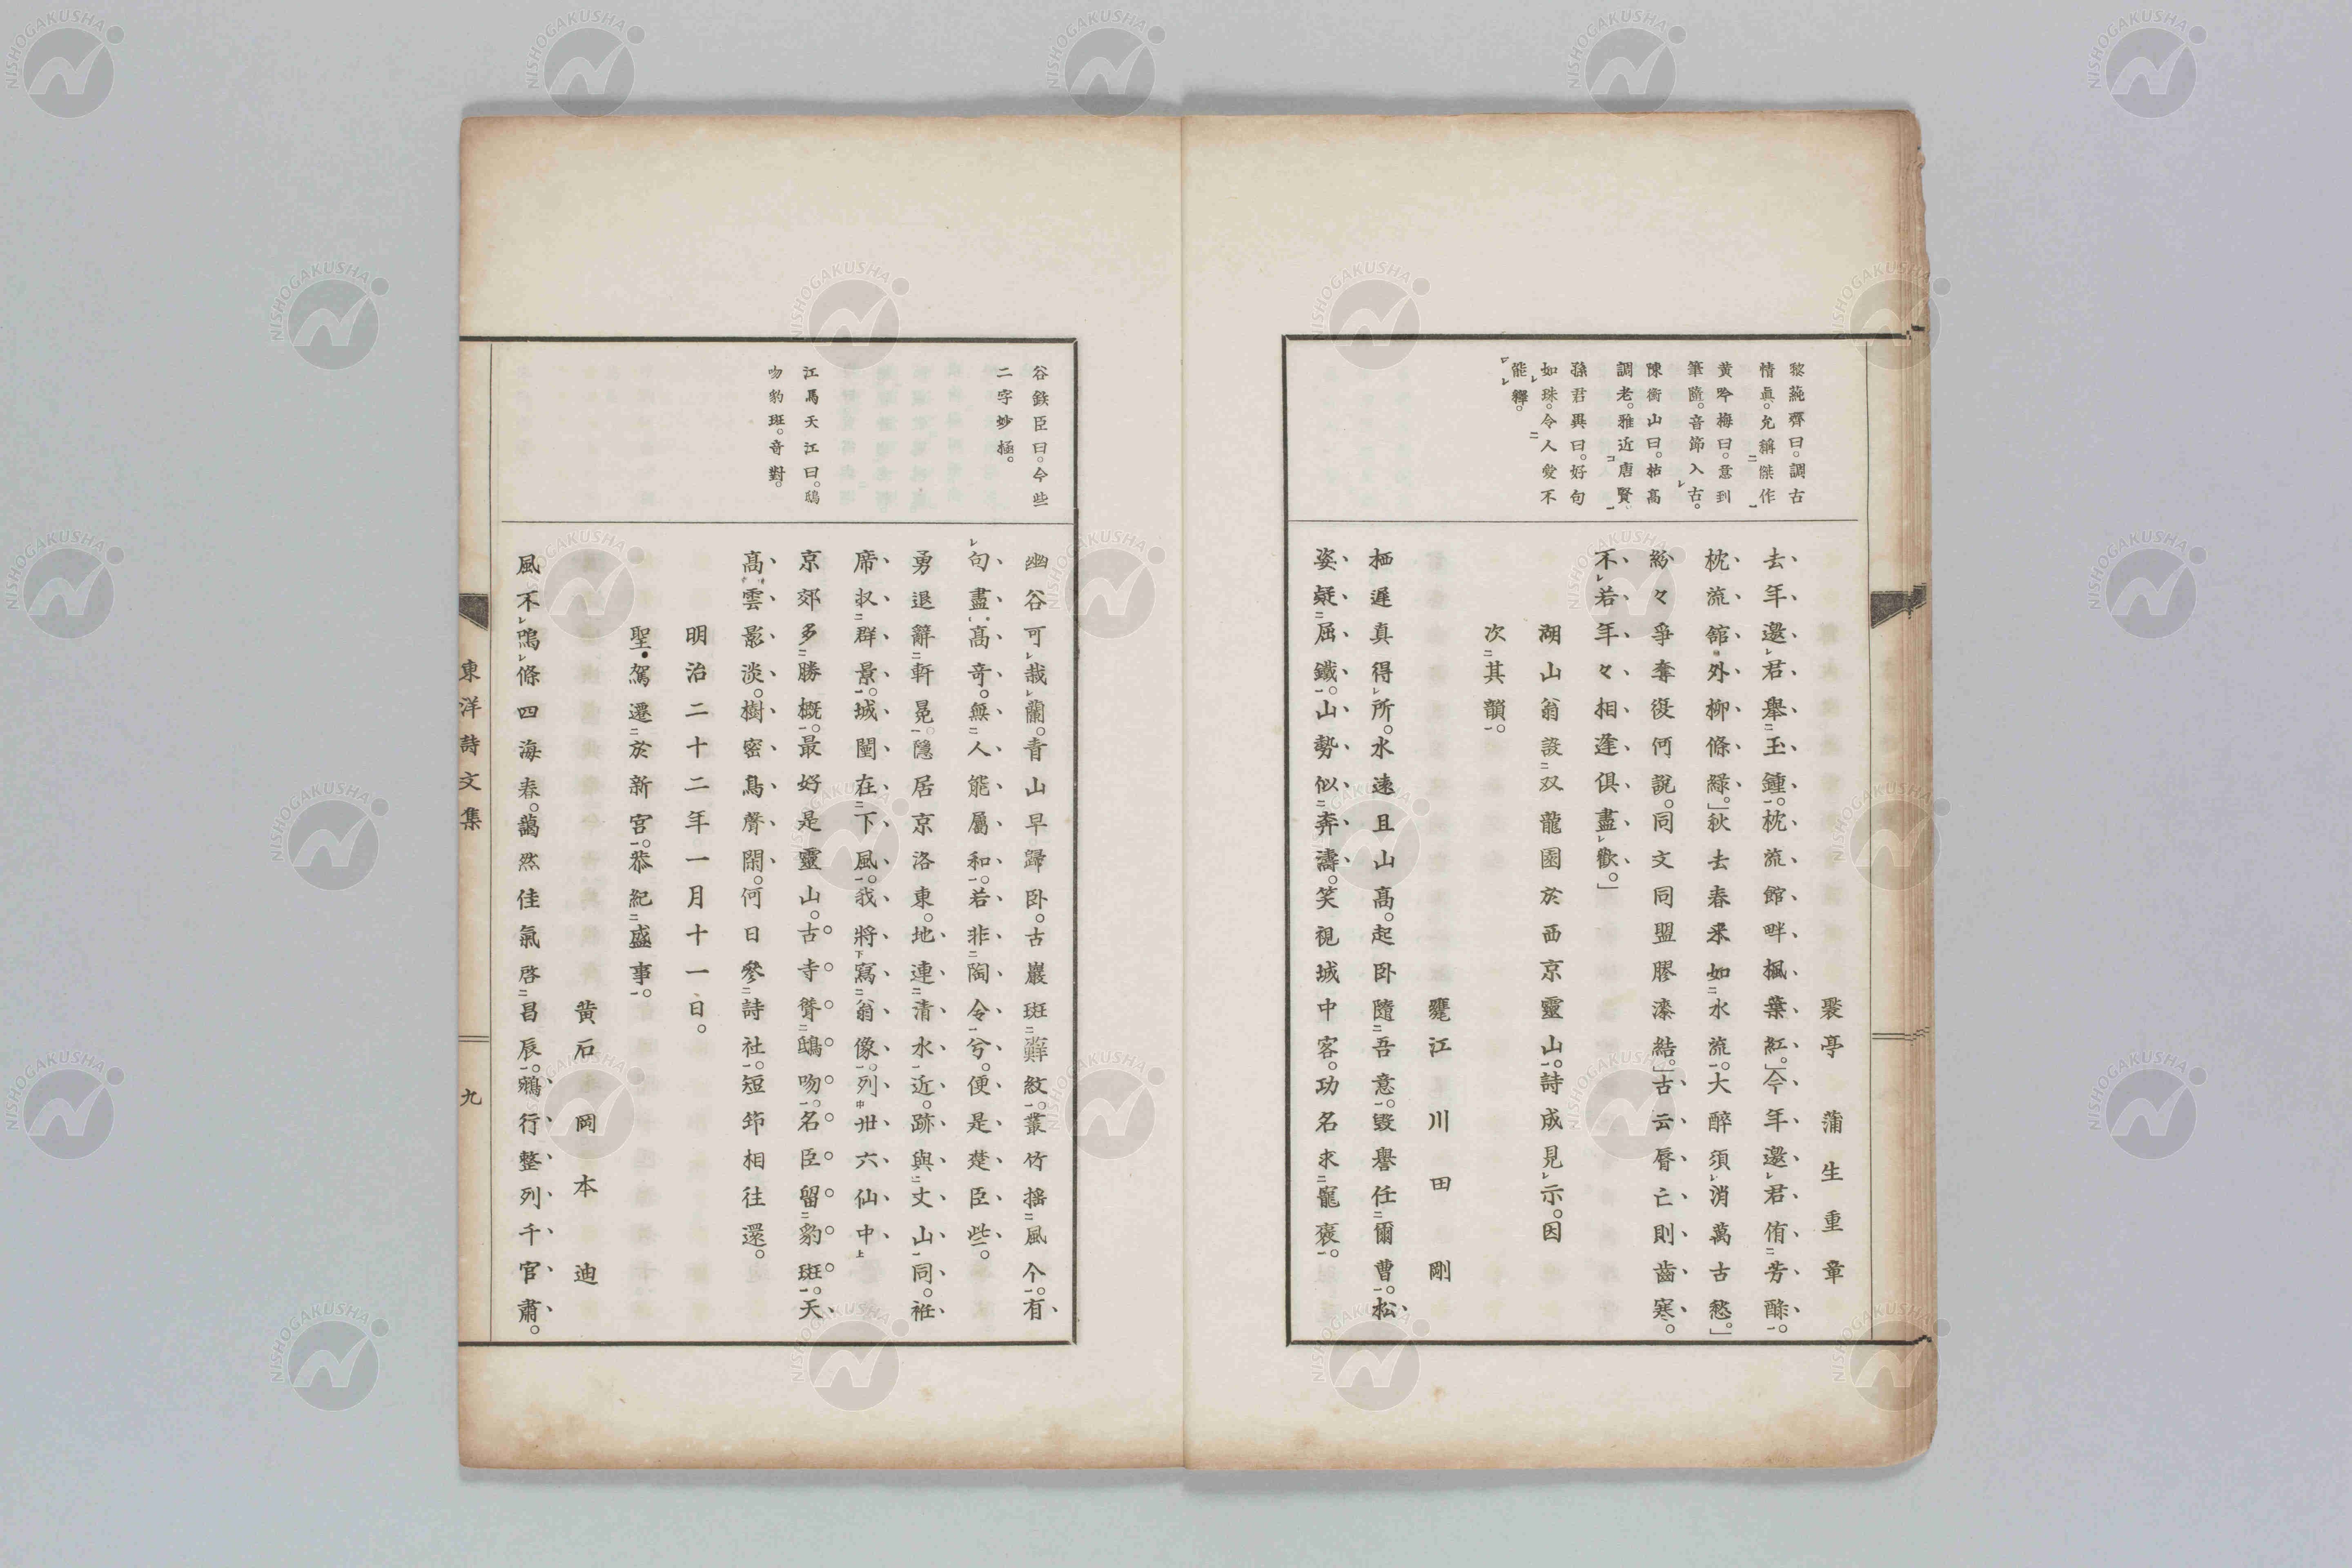 黎蒓齊曰。調古
情眞。允稱傑作
黄吟梅曰。意到
筆隨。音節入古。
陳衡山曰。枯高
調老。雅近唐賢
孫君異曰。好句
如珠。令人愛不
能釋。
褧亭 蒲生重章
去年邀君舉玉鍾。枕流館畔楓葉紅。」今年邀君侑芳醁。
枕流館外柳條緑。」秋去春來如水流。大醉須消萬古愁。」
紛々爭奪復何說。同文同盟膠漆結。」古云脣亡則齒寒。
不若年々相逢俱盡歡。」
湖山翁設双龍園於西京靈山。詩成見示。因
次其韻。
甕江 川田 剛
栖遲真得所。水遠且山高。起卧隨吾意。毀譽任爾曹。松
姿疑屈鐵。山勢似奔濤。笑視城中客。功名求寵褒。
谷鉄臣曰。今些
二字妙極。
江馬天江曰。鴟
吻豹斑。奇對。
幽谷可哉蘭。青山早歸卧。古巖斑蘚紋。叢竹搖風个。有
句盡高奇。無人能屬和。若非陶令兮。便是楚臣些。
勇退辭軒冕。隱居京洛東。地連清水近。跡與丈山同。袵
席収群景。城闉在下風。我將寫翁像。列卅六仙中
京郊多勝概。最好是靈山。古寺聳鴟吻。名臣留豹斑。天
高雲影淡。樹密鳥聲閑。何日參詩社。短筇相往還。
明治二十二年一月十一日。
聖駕遷於新宮。恭紀盛事。
黄石 岡本 迪
風不鳴條四海春。藹然佳氣啓昌辰。鵷行整列千官肅。
東洋詩文集
九